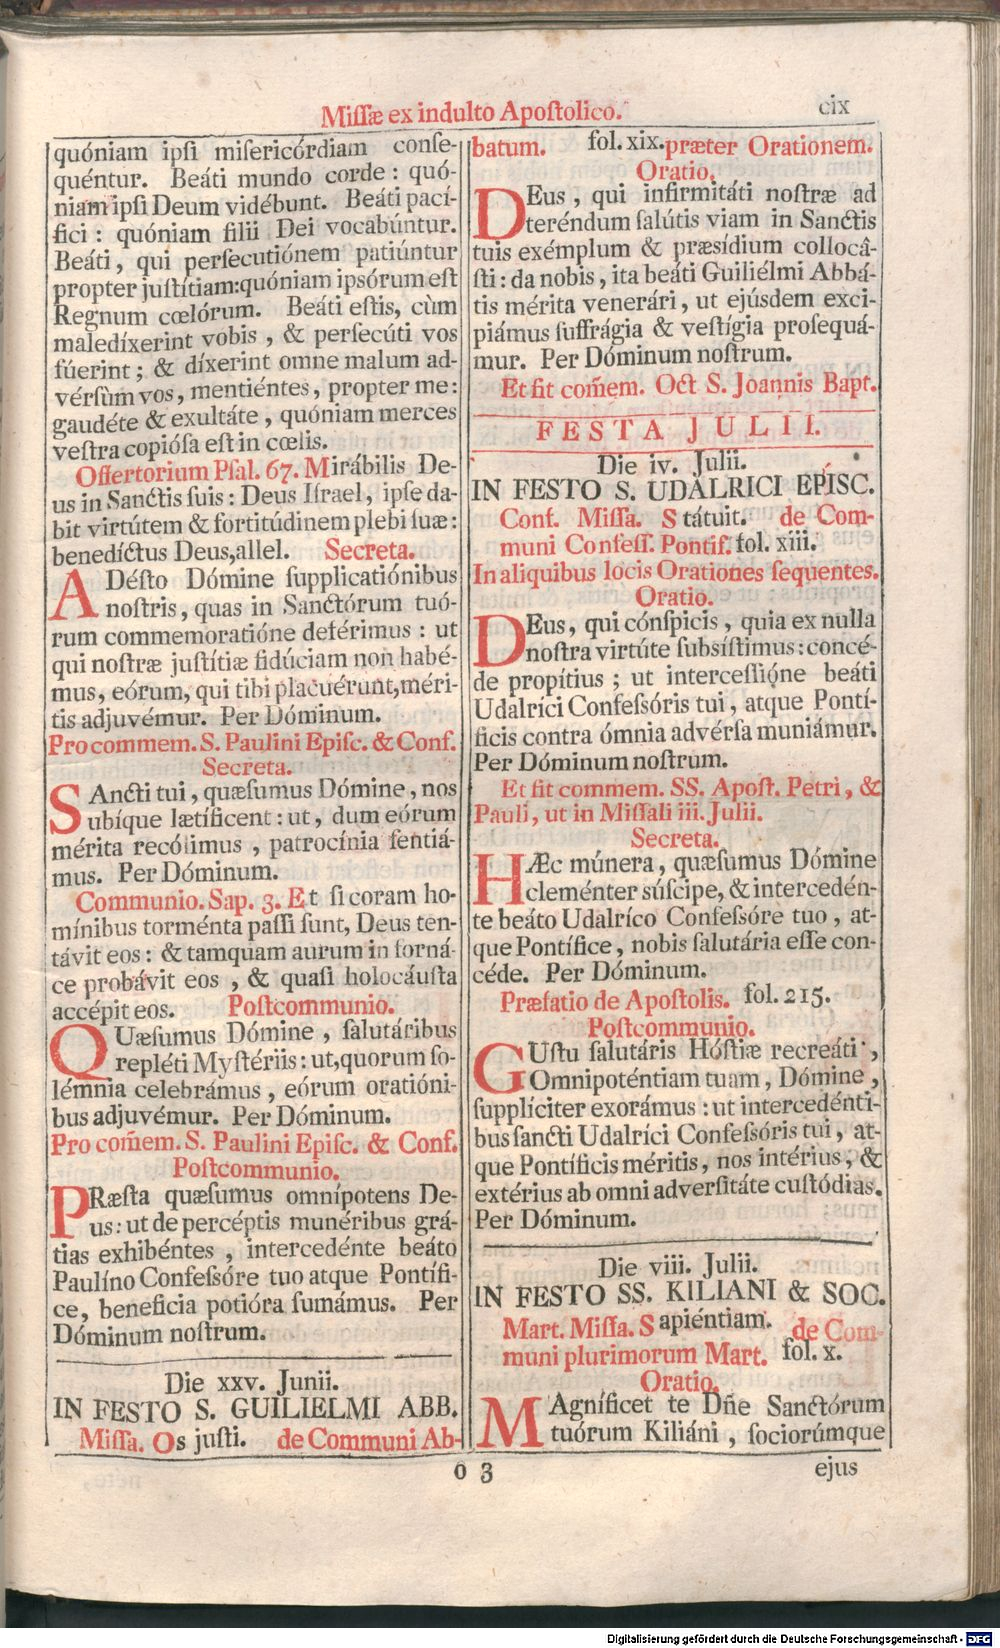 Miſſæ ex indulto Apoſtolico.
cix
quóniam ipſi miſericórdiam conſe-
quéntur. Beáti mundo corde : quó-
niam ipſi Deum vidébunt. Beáti pací-
fici : quóniam filii Dei vocabúntur.
Beáti, qui perſecutiónem patiúntur
propter juſtítiam:quóniam ipsórum eſt
Regnum cœlórum. Beáti eſtis, cùm
maledíxerint vobis , & perſecúti vos
fúerint ; & díxerint omne malum ad-
vérſùm vos, mentiéntes, propter me:
gaudéte & exultáte , quóniam merces
veſtra copióſa eſt in cœlis.
Offertorium Pſal. 67. Mirábilis De-
us in Sanctis ſuis : Deus Iſrael, ipſe da-
bit virtútem & fortitúdinem plebi ſuæ:
benedíctus Deus,allel. Secreta.
ADéſto Dómine ſupplicatiónibus
noſtris, quas in Sanctórum tuó-
rum commemoratióne deférimus : ut
qui noſtræ juſtítiæ fidúciam non habé-
mus, eórum, qui tibi placuérunt,méri-
tis adjuvémur. Per Dóminum.
Pro commem. S. Paulini Epiſc. & Conf.
Secreta.
SAncti tui, quæſumus Dómine, nos
ubíque lætíficent : ut, dum eórum
mérita recólimus , patrocínia ſentiá-
mus. Per Dóminum.
Communio. Sap. 3. Et ſi coram ho-
mínibus torménta paſſi ſunt, Deus ten-
távit eos : & tamquam aurum in forná-
ce probávit eos , & quaſi holocáuſta
accépit eos. Poſtcommunio.
QUæſumus Dómine , ſalutáribus
repléti Myſtériis : ut,quorum ſo-
lémnia celebrámus , eórum oratióni-
bus adjuvémur. Per Dóminum.
Pro com̃em. S. Paulini Epiſc. & Conf.
Poſtcommunio.
PRæſta quæſumus omnípotens De-
us: ut de percéptis munéribus grá-
tias exhibéntes , intercedénte beáto
Paulíno Confeſsóre tuo atque Pontífi-
ce, beneficia potióra ſumámus. Per
Dóminum noſtrum.
Die xxv. Junii.
IN FESTO S. GUILIELMI ABB.
Miſſa. Os juſti. de Communi Ab-
batum. fol. xix. præter Orationem.
Oratio.
DEus , qui infirmitáti noſtræ ad
teréndum ſalútis viam in Sanctis
tuis exémplum & præsídium collocâ-
ſti : da nobis , ita beáti Guiliélmi Abbá-
tis mérita venerári, ut ejúsdem exci-
piámus ſuffrágia & veſtígia proſequá-
mur. Per Dóminum noſtrum.
Et fit com̃em. Oct S. Joannis Bapt.
FESTA JULII.
Die iv. Julii.
IN FESTO S. UDALRICI EPISC.
Conf. Miſſa. Státuit. de Com-
muni Confeſſ. Pontif. fol. xiii.
In aliquibus locis Orationes ſequentes.
Oratio.
DEus, qui cónſpicis , quia ex nulla
noſtra virtúte ſubsíſtimus : concé-
de propítius ; ut interceſſióne beáti
Udalríci Confeſsóris tui , atque Pontí-
ficis contra ómnia advérſa muniámur.
Per Dóminum noſtrum.
Et fit commem. SS. Apoſt. Petri, &
Pauli, ut in Miſſali iii. Julii.
Secreta.
HÆc múnera, quæſumus Dómine
cleménter súſcipe, & intercedén-
te beáto Udalríco Confeſsóre tuo , at-
que Pontífice , nobis ſalutária eſſe con-
céde. Per Dóminum.
Præfatio de Apoſtolis. fol. 215.
Poſtcommunio.
GUſtu ſalutáris Hóſtiæ recreáti ,
Omnipoténtiam tuam , Dómine ,
ſupplíciter exorámus : ut intercedénti-
bus ſancti Udalríci Confeſsóris tui , at-
que Pontíficis méritis , nos intérius , &
extérius ab omni adverſitáte cuſtódias.
Per Dóminum.
Die viii. Julii.
IN FESTO SS. KILIANI & SOC.
Mart. Miſſa. Sapiéntiam. de Com-
muni plurimorum Mart. fol. x.
Oratio.
MAgníficet te Dñe Sanctórum
tuórum Kiliáni , ſociorúmque
o 3
ejus
Digitalisierung gefördert durch die Deutsche Forschungsgemeinschaft - DFG